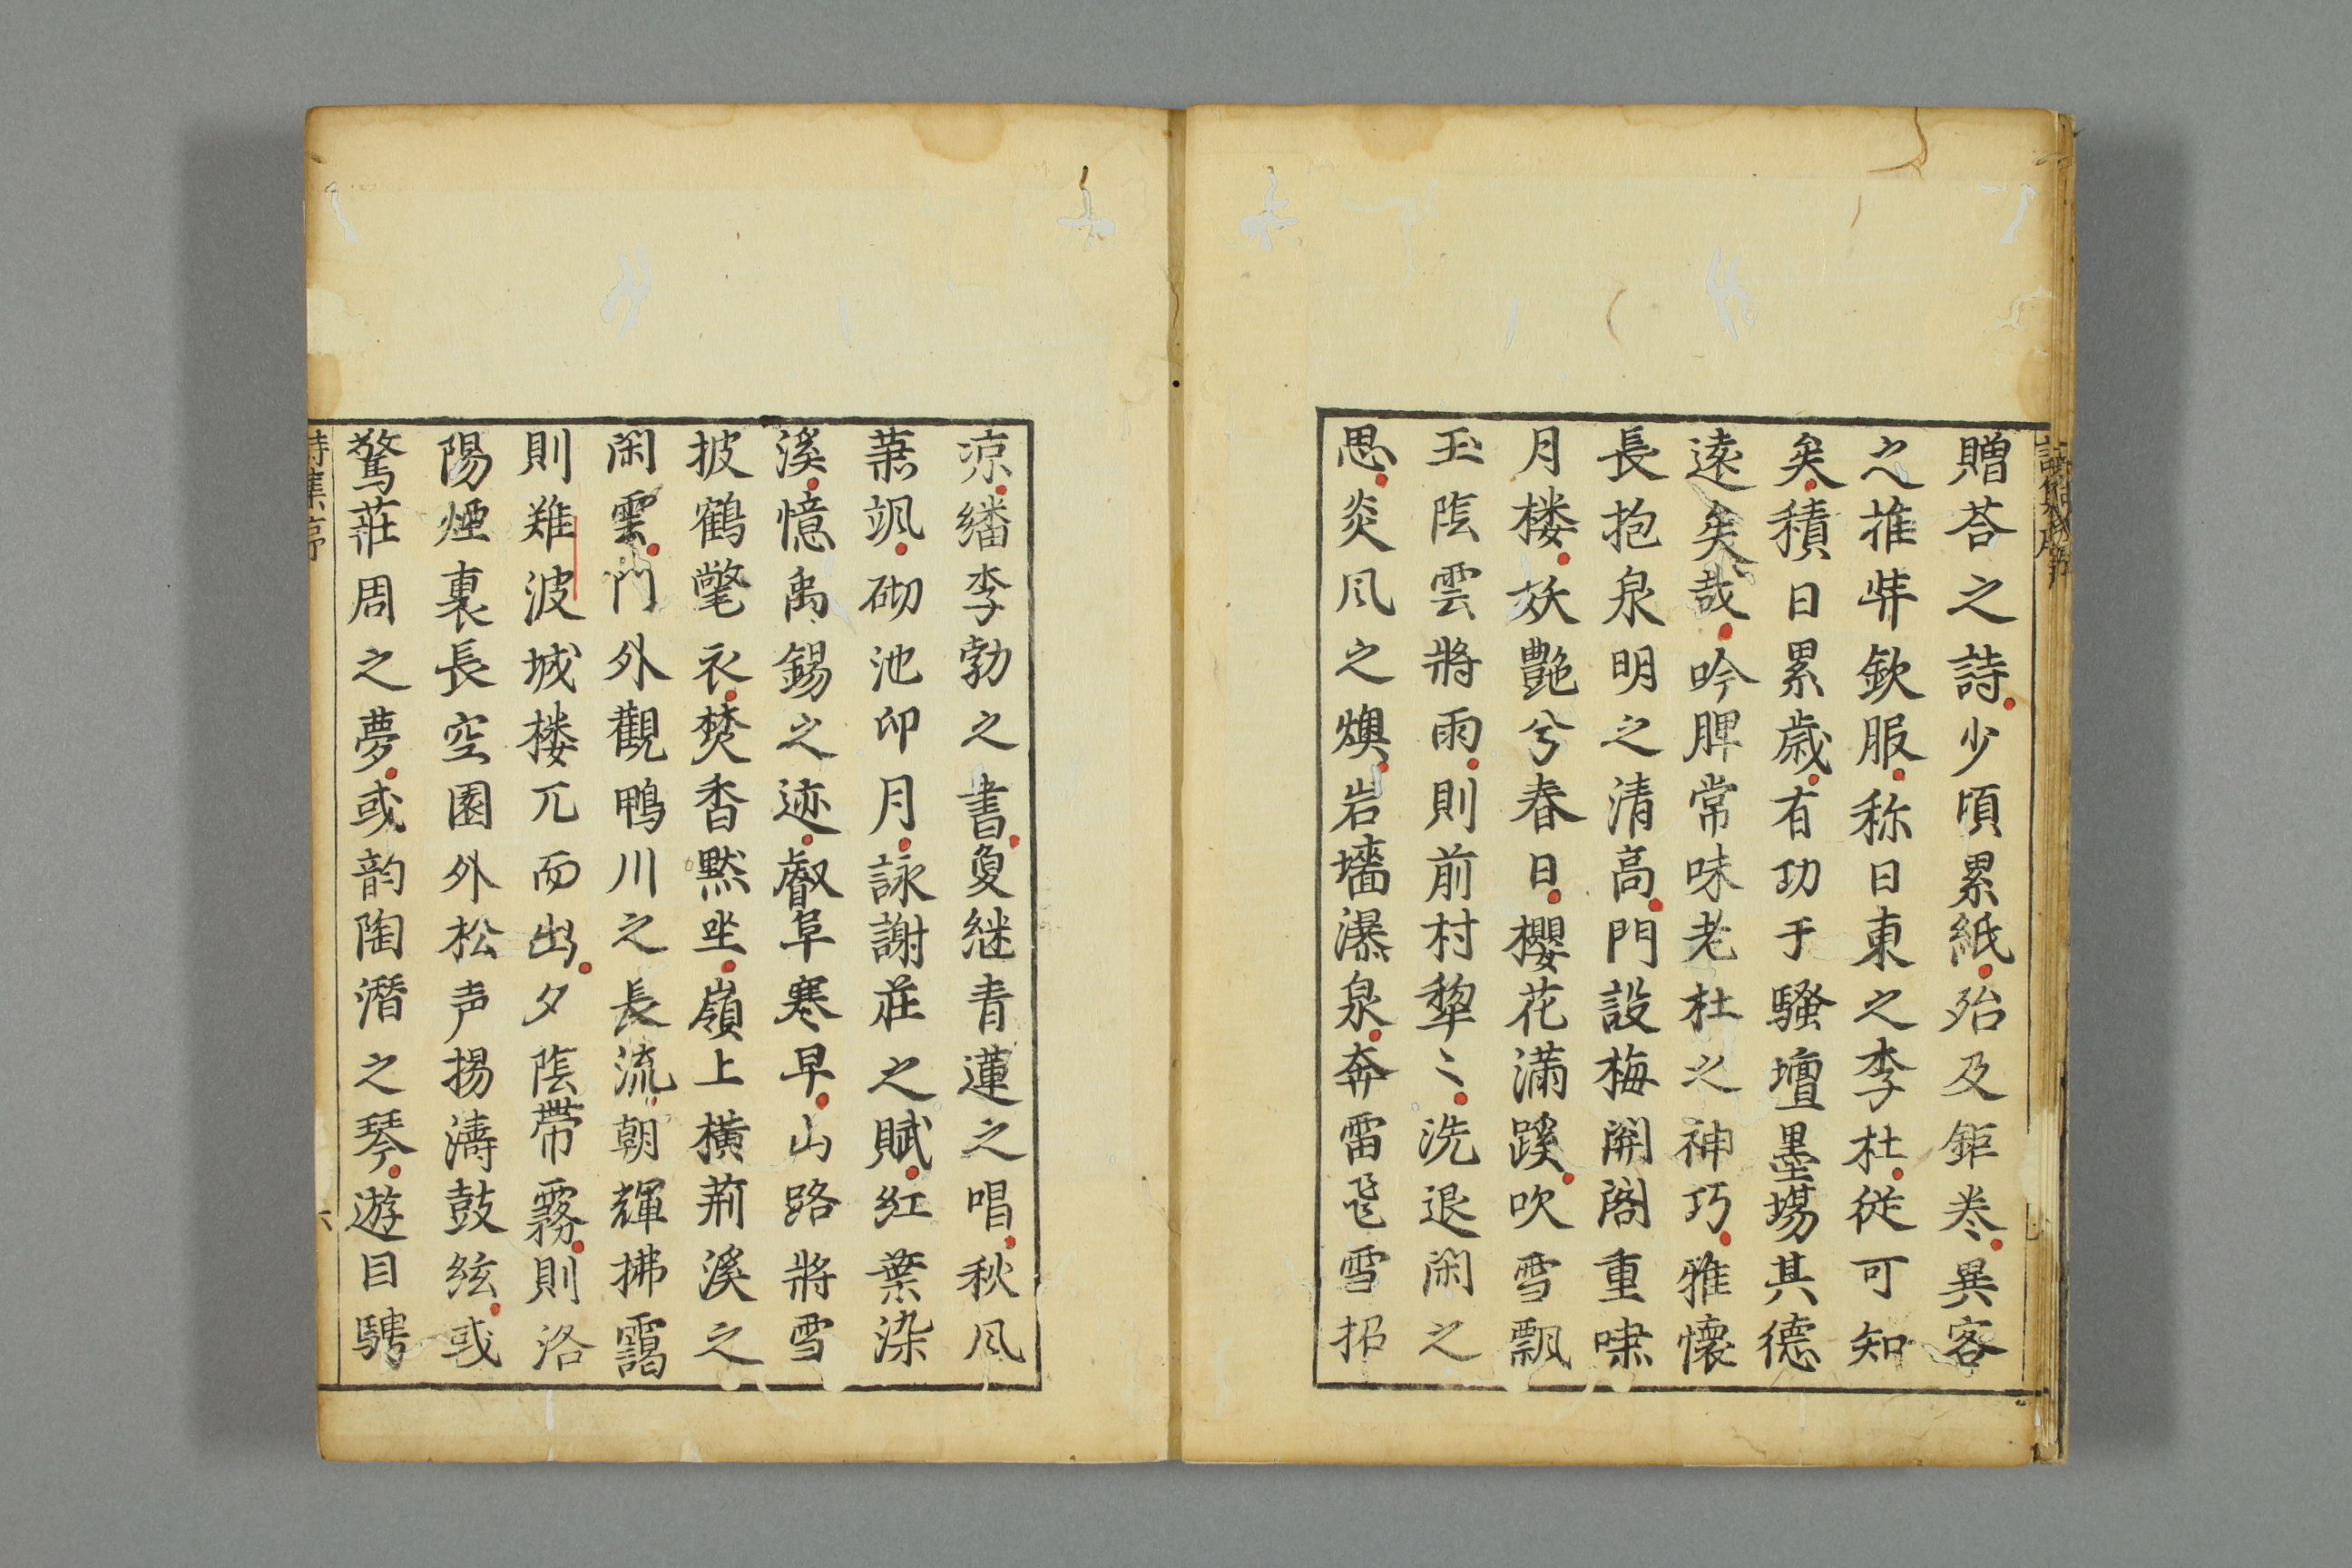 贈荅之詩少頃累紙殆及鉅卷異客
之推歩欽服称日東之李杜従可知
矣積日累歳有功于騒壇墨場其德
遠矣哉吟脾常味老杜之神巧雅懷
長抱泉明之清高門設梅開閣重嘯
月楼妖艷兮春日櫻花滿蹊吹雪飄
玉陰雲將雨則前村犂〻洗退閑之
思炎风之燠岩墻瀑泉奔雷飛雪招
涼繙李勃之書夐継青蓮之唱秋风
葉颯砌池印月詠謝莊之賦红葉染
溪憶禹錫之迹叡阜寒早山路將雪
披鶴氅衣焚香黙坐嶺上橫荊溪之
閑雲門外觀鴨川之長流朝輝拂靄
則難波城楼兀而出夕陰帶霧則洛
陽煙裏長空園外松声揚濤鼓絃或
驚莊周之夢或韵陶潛之琴遊目騁
詩集序
六